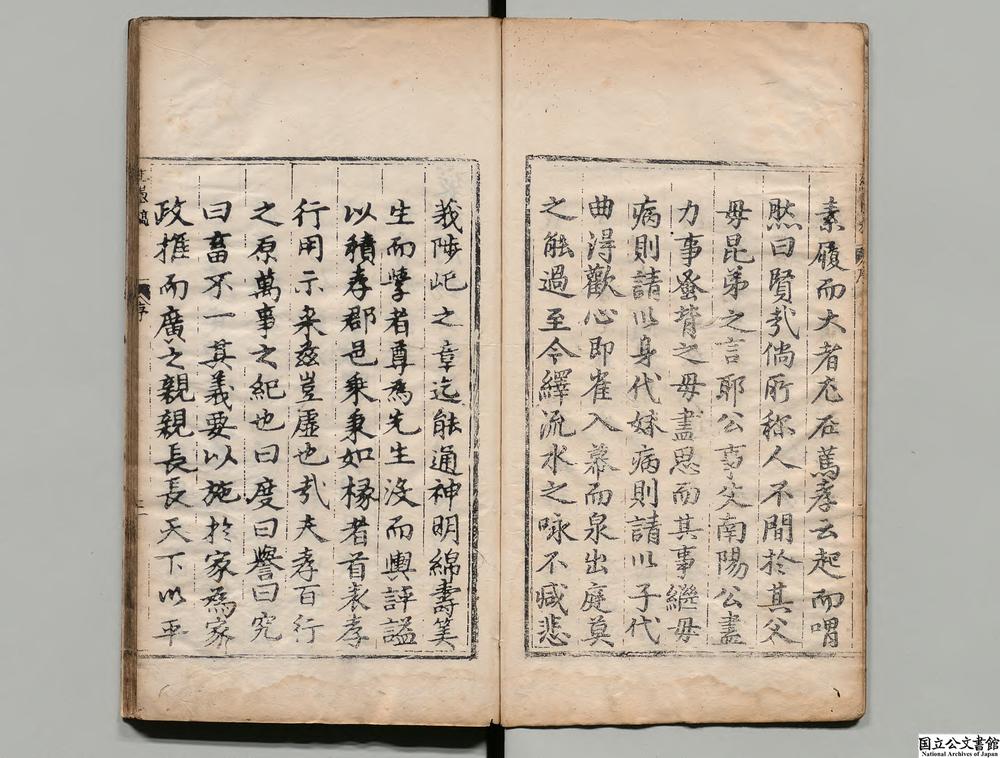 素履而大者尤在篤孝云起而喟
然曰賢哉倘所称人不間於其父
母昆弟之言耶公事父南陽公盡
力事蚤背之母盡思而其事繼母
病則請以身代妹病則請以子代
曲得歡心即雀入幕而泉出庭莫
之能過至今繹流水之咏不减悲
莪陟屺之章迄能通神明綿壽筭
生而孽者尊為先生沒而輿評謚
以積孝郡邑乘秉如椽者首表孝
行用示来玆豈虛也哉夫孝百行
之原萬事之紀也曰度曰譽曰究
曰畜不一其義要以施於家為家
政推而廣之親親長長天下以平
序
国立公文書館
National Archives of Japan